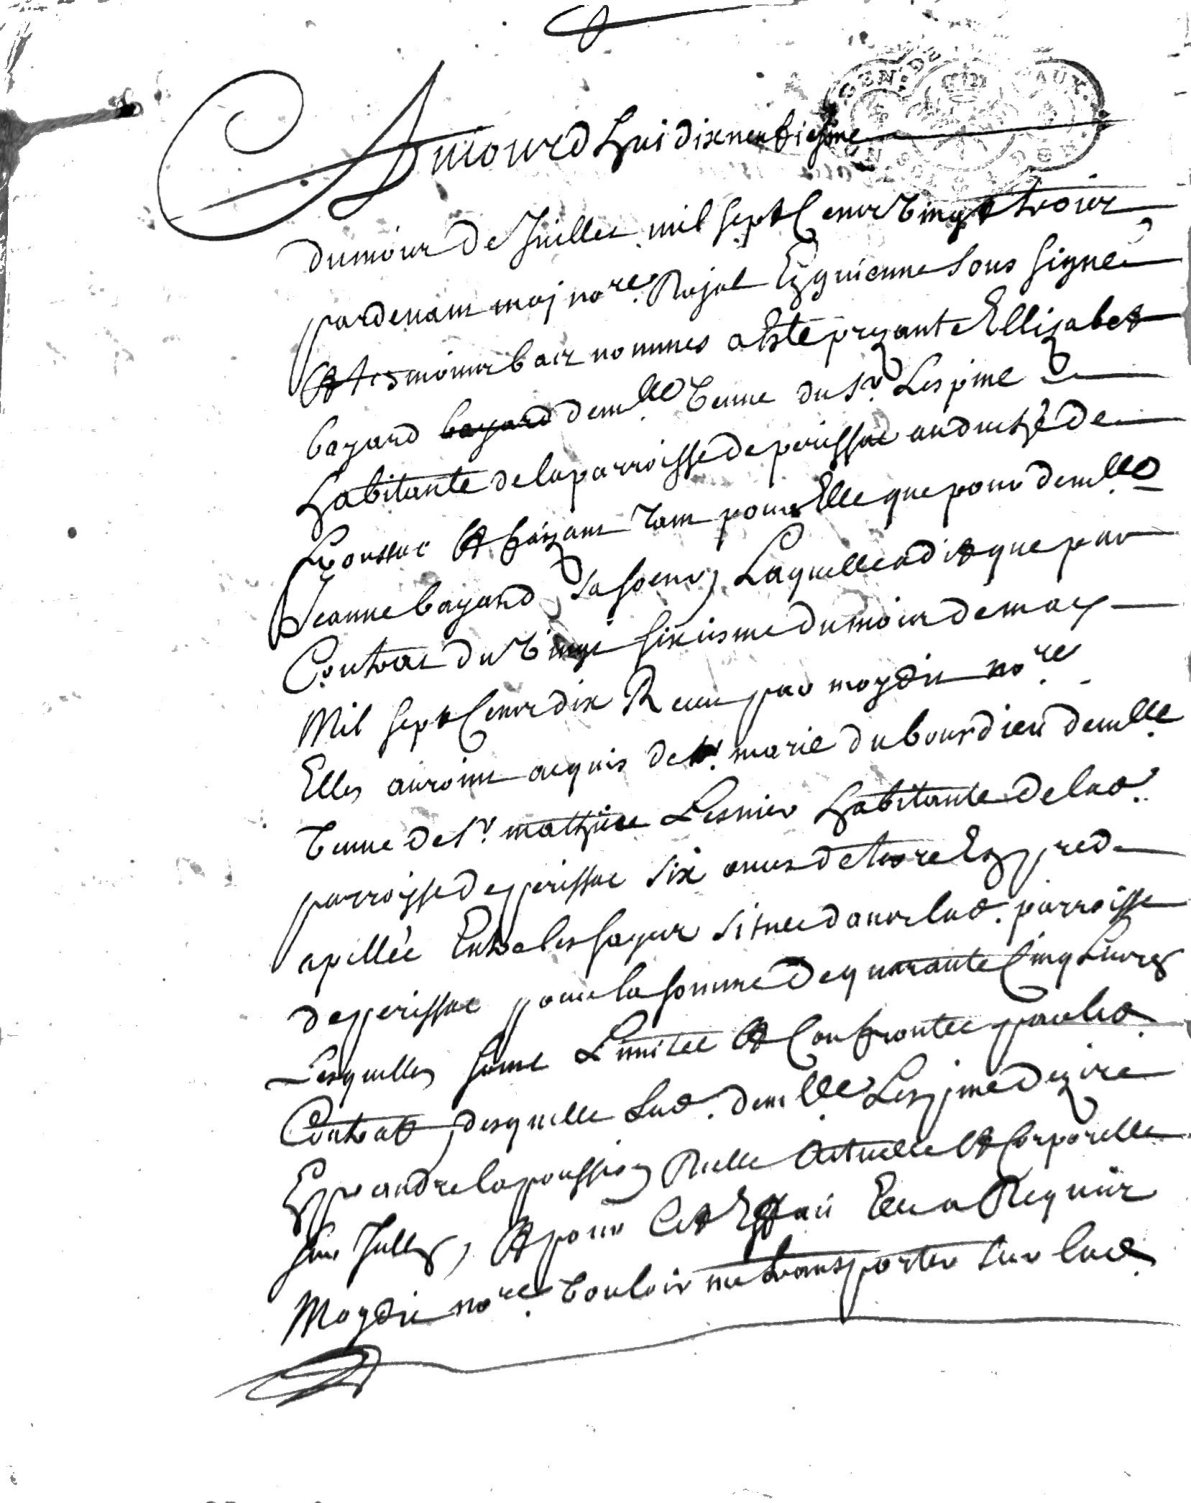 GEN. DE BORDEAUX.
Aujourd huy dixneufviesme
du mois de Juillet mil sept Cens vingt trois
pardevant moy no.re Royal En guienne sous signé
Et tesmoins bas nommes a Este prezante Ellizabet
bayard bayard dem.lle veuve du Sr. Lespine
habitante de la parroisse de perissac au duché de
fronssac Et faizant tant pour Elle que pour dem.lle
Jeanne bayard sa soeur, Laquelle a dit que par
Contrat du vingt sixiesme du mois de may
Mil sept Cens dix Receu par moydit no.re
Elles auroint acquis de marie dubourdieu dem.lle
veuve de Sr. mathieu Lesnier habitante de lad.
parroisse de perissac six de terre En pred
apellée situee dans lad. parroisse
de perissac pour la somme de quarante Cinq Livres
Lesquelles sont Limitée Et Confrontée par led.
Contrat, desquelle lad. dem.lle Lespine dezire
En prandre la poussion Rielle actuelle Et Corporelle
Et pour Cet Effait Elle a Requis
Moydit no.re vouloir me transporter sur lad.